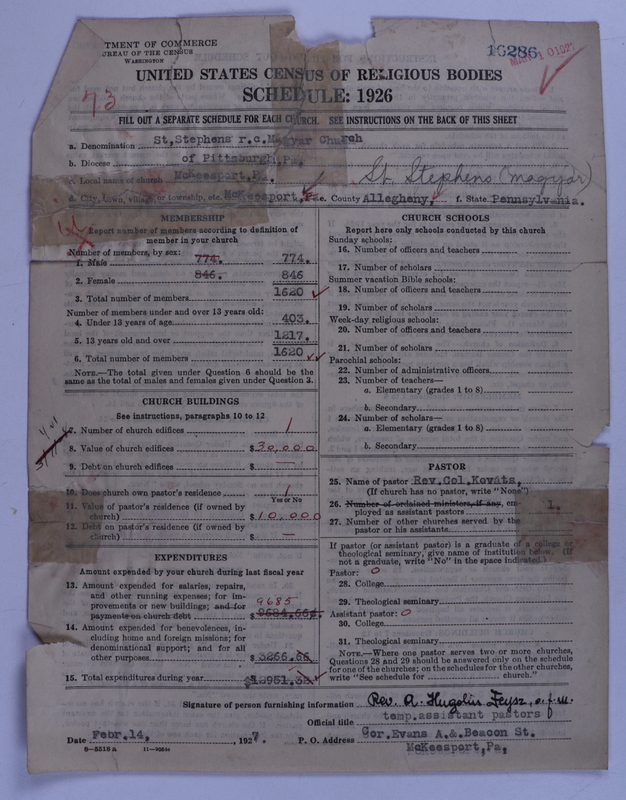 TMENT OF COMMERCE
REAU OF THE CENSUS
WASHINGTON
16286
73
UNITED STATES CENSUS OF RELIGIOUS BODIES
SCHEDULE: 1926
FILL OUT A SEPARATE SCHEDULE FOR EACH CHURCH. SEE INSTRUCTIONS ON THE BACK OF THIS SHEET
a. Denomination St,Stephens r.c.Magyar Church
b. Diocese of Pittsburgh,Pa.
c. Local name of church McKeesport,Pa. St. Stephens (Magyar)
d. City, town, village, or township, etc. McKeesport, e. County Allegheny, f. State Pennsylvania.
MEMBERSHIP
Report number of members according to definition of
member in your church
Number of members, by sex:
1. Male 774. 774.
2. Female 846. 846
3. Total number of members 1620
Number of members under and over 13 years old:
4. Under 13 years of age 403.
5. 13 years old and over 1217.
6. Total number of members 1620
NOTE.—The total given under Question 6 should be the
same as the total of males and females given under Question 3.
CHURCH BUILDINGS
See instructions, paragraphs 10 to 12
7. Number of church edifices 1
8. Value of church edifices $30,000
9. Debt on church edifices $ —
10. Does church own pastor's residence 1
Yes or No
11. Value of pastor's residence (if owned by
church) $10,000
12. Debt on pastor's residence (if owned by
church) $ —
EXPENDITURES
Amount expended by your church during last fiscal year
13. Amount expended for salaries, repairs,
and other running expenses; for im-
provements or new buildings; and for 9685
payments on church debt $ 9684.66
14. Amount expended for benevolences, in-
cluding home and foreign missions; for
denominational support; and for all
other purposes $ 3266.66
15. Total expenditures during year $12951.32
CHURCH SCHOOLS
Report here only schools conducted by this church
Sunday schools:
16. Number of officers and teachers
17. Number of scholars
Summer vacation Bible schools:
18. Number of officers and teachers
19. Number of scholars
Week-day religious schools:
20. Number of officers and teachers
21. Number of scholars
Parochial schools:
22. Number of administrative officers
23. Number of teachers—
a. Elementary (grades 1 to 8)
b. Secondary
24. Number of scholars—
a. Elementary (grades 1 to 8)
b. Secondary
PASTOR
25. Name of pastor Rev.Col.Kováts,
(If church has no pastor, write "None")
26. Number of ordained ministers, if any, em-
ployed as assistant pastors 1.
27. Number of other churches served by the
pastor or his assistants
If pastor (or assistant pastor) is a graduate of a college or
theological seminary, give name of institution below. (If
not a graduate, write "No" in the space indicated.)
Pastor: 0
28. College
29. Theological seminary
Assistant pastor: 0
30. College
31. Theological seminary
NOTE.—Where one pastor serves two or more churches,
Questions 28 and 29 should be answered only on the schedule
for one of the churches; on the schedules for the other churches,
write "See schedule for church."
Signature of person furnishing information Rev. A. Hugolin Feysz, o.f.m.
Official title temp.assistant pastors
Date Febr.14, 1927. P. O. Address Cor.Evans A.&.Beacon St.
McKeesport,Pa,